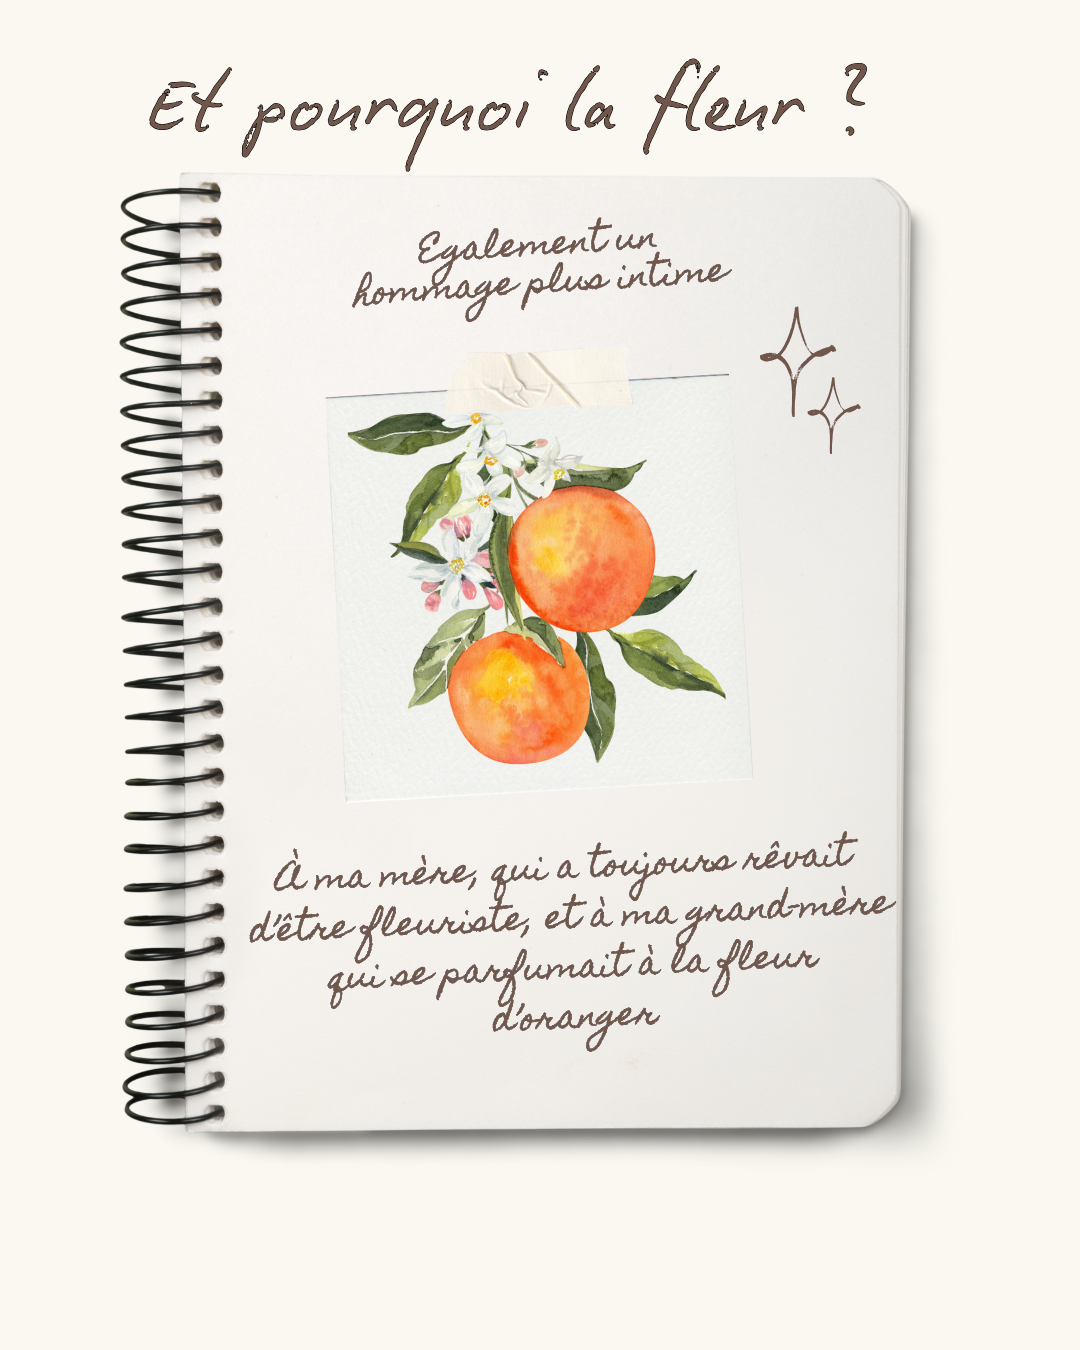 Et pourquoi la fleur ?
Egalement un
hommage plus intime
À ma mère, qui a toujours rêvait
d'être fleuriste, et à ma grand-mère
qui se parfumait à la fleur
d'oranger